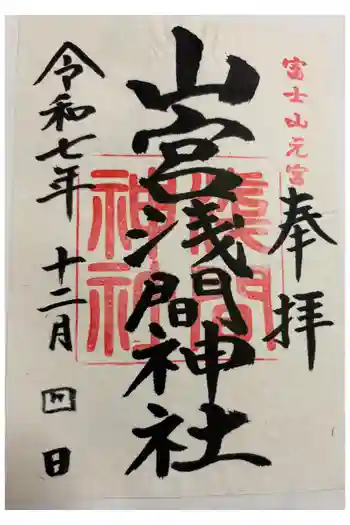 富士山元宮
奉拝
山宮浅間神社
令和七年 十二月 四日
浅間
神社